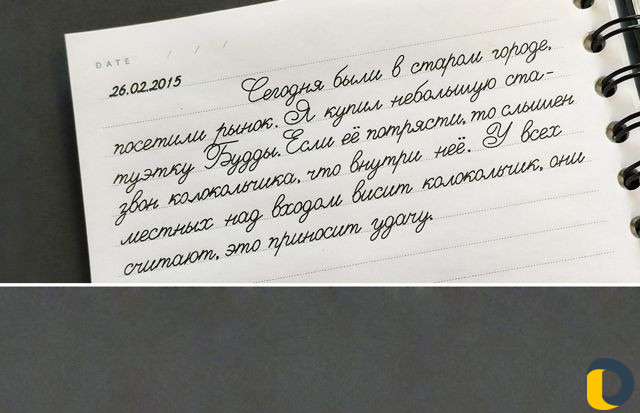 DATE / / /
26.02.2015 Сегодня были в старом городе,
посетили рынок. Я купил небольшую ста-
туэтку Будды. Если её потрясти, то слышен
звон колокольчика, что внутри неё. У всех
местных над входом висит колокольчик, они
считают, это приносит удачу.